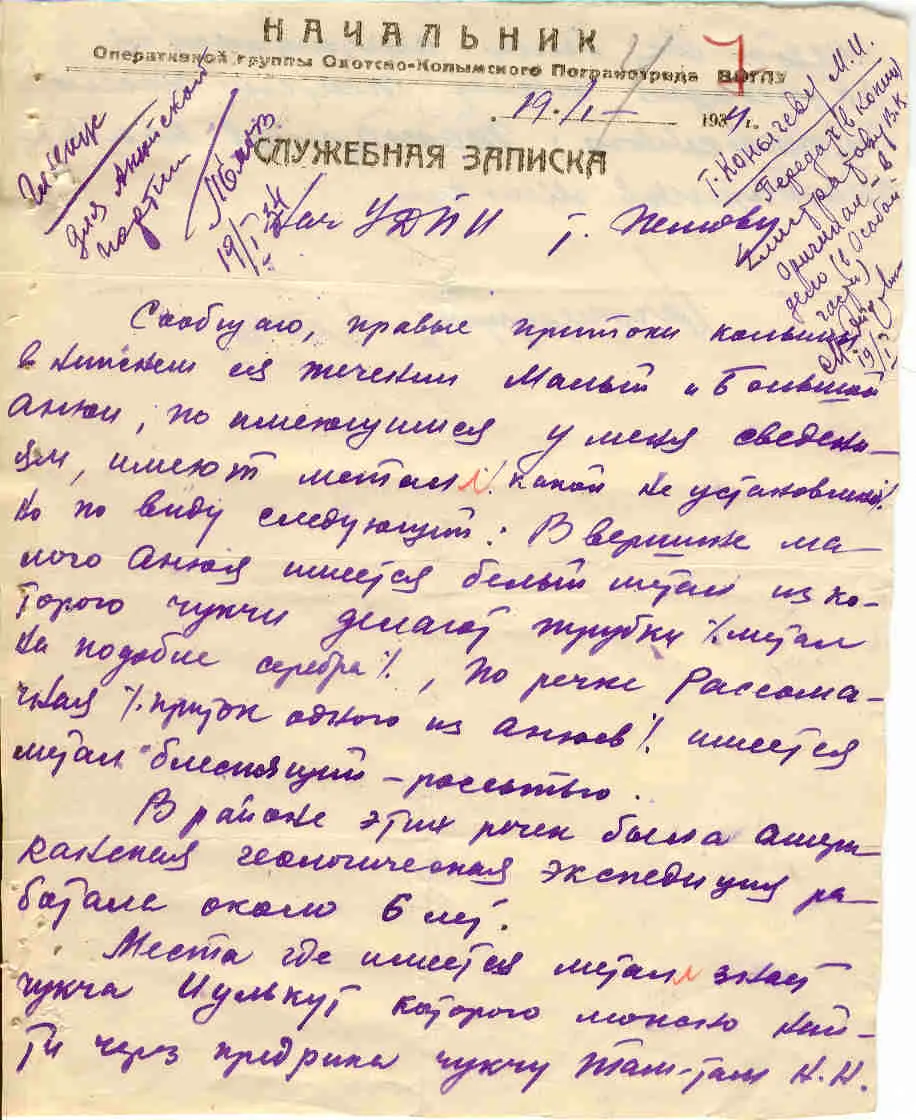 НАЧАЛЬНИК
Оперативной группы Охотско-Колымского Погранотряда ВОГПУ
19.I- 1934г.
СЛУЖЕБНАЯ ЗАПИСКА
для Анюйской
партии
19/I 34
т. Конычеву М.И.
Передать в копии
Оригинал - в
дело (в Особой
части)
19/I
Нач УДПИ т.
Сообщаю, правые притоки колымы
в нижнем ея течении Малый и Большой
Анюи, по имеющимся у меня сведени-
ям, имеют металл. какой не установлено.
но по виду следующий: В вершине ма-
лого Анюя имеется белый метал из ко-
торого чукчи делают трубки /.метал
на подобие серебра/., по речке Рассома-
шная /.приток одного из анюев/. имеется
метал блестящий - россыпью.
В районе этих речек была амери
канская геологическая экспедиция ра-
ботала около 6 лет.
Места где имеется металл знает
чукча которого можно най-
ти через предрика чукчу Н.Н.